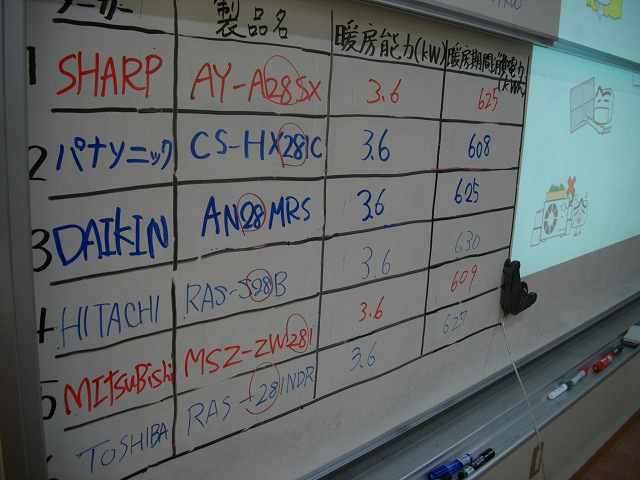 メーカー 製品名 暖房能力(kW) 暖房期間消費電力(kWh)
1 SHARP AY-A28SX 3.6 625
2 パナソニック CS-HX281C 3.6 608
3 DAIKIN AN28MRS 3.6 625
4 HITACHI RAS-S28B 3.6 630
5 MITSuBiShi MSZ-ZW281 3.6 609
TOSHIBA RAS-281NDR 3.6 627